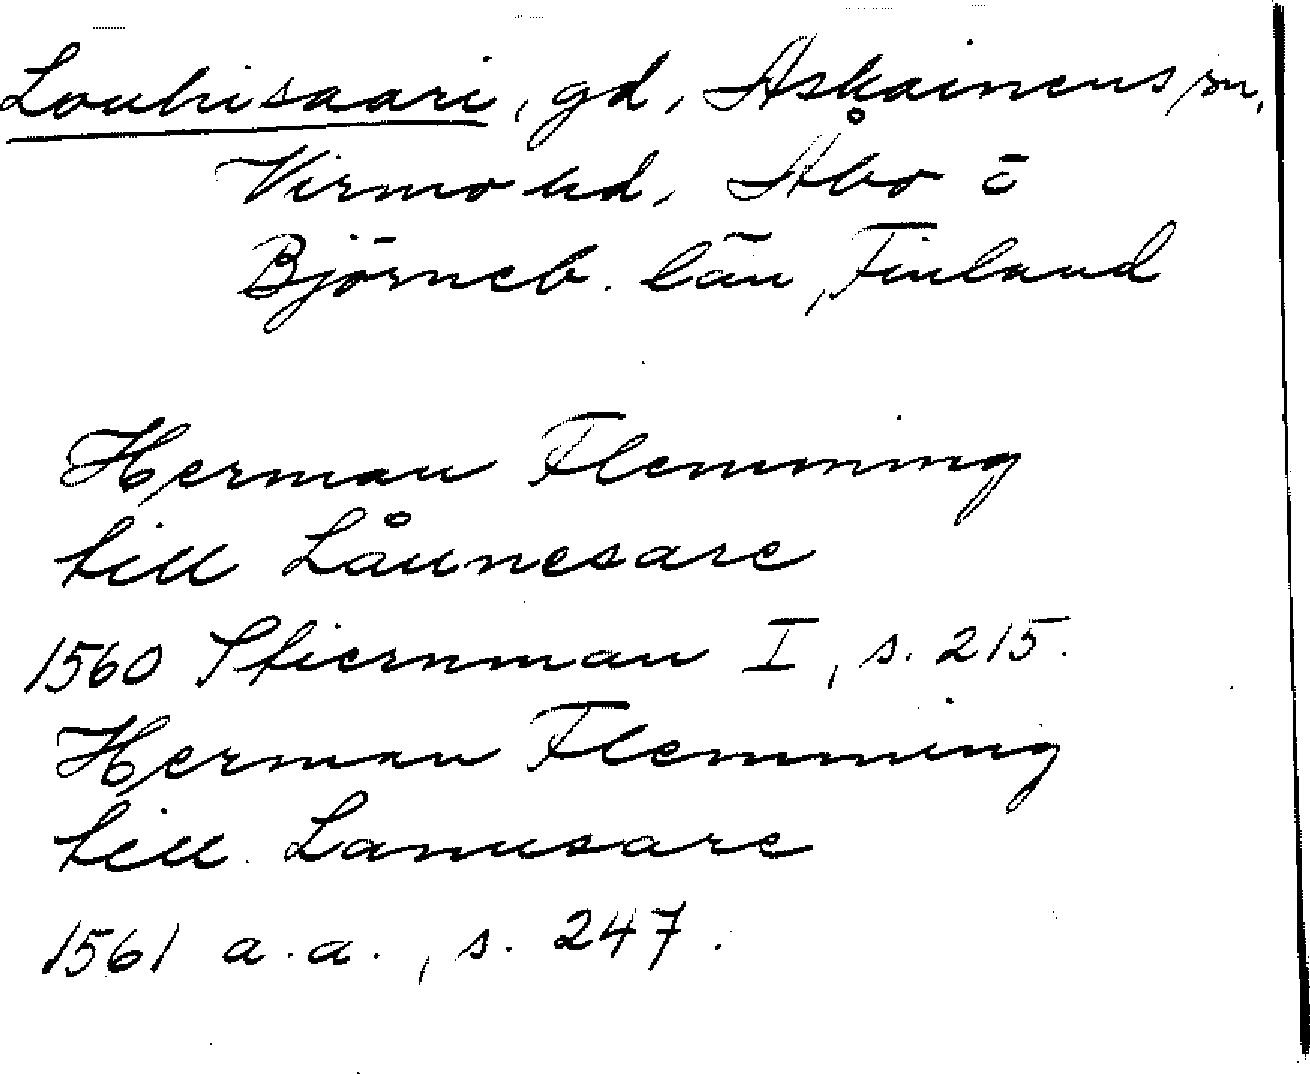 Louhisaari, gd, Askainens sn,
Virmo hd, Åbo o
Björneb. län, Finland
Herman Flemming
till Låunesare
1560 Stiernman I, s. 215.
Herman Flemming
till Lanusare
1561 a.a., s. 247.